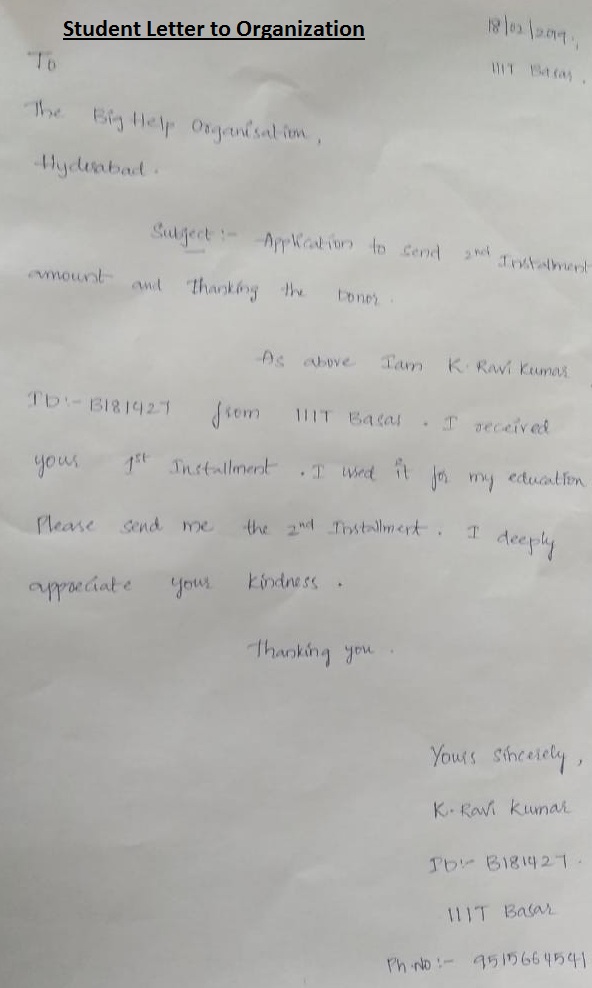 Student Letter to Organization
18/02/2019,
To
IIIT Basar.
The Big Help Organisation,
Hyderabad.
Subject :- Application to send 2nd Installment
amount and Thanking the Donor.
As above I am K. Ravi Kumar
ID:- B181427 from IIIT Basar. I received
your 1st Installment. I used it for my education
Please send me the 2nd Installment. I deeply
appreciate your kindness.
Thanking you.
Yours sincerely,
K. Ravi Kumar
ID:- B181427.
IIIT Basar
Ph.No:- 9515664541